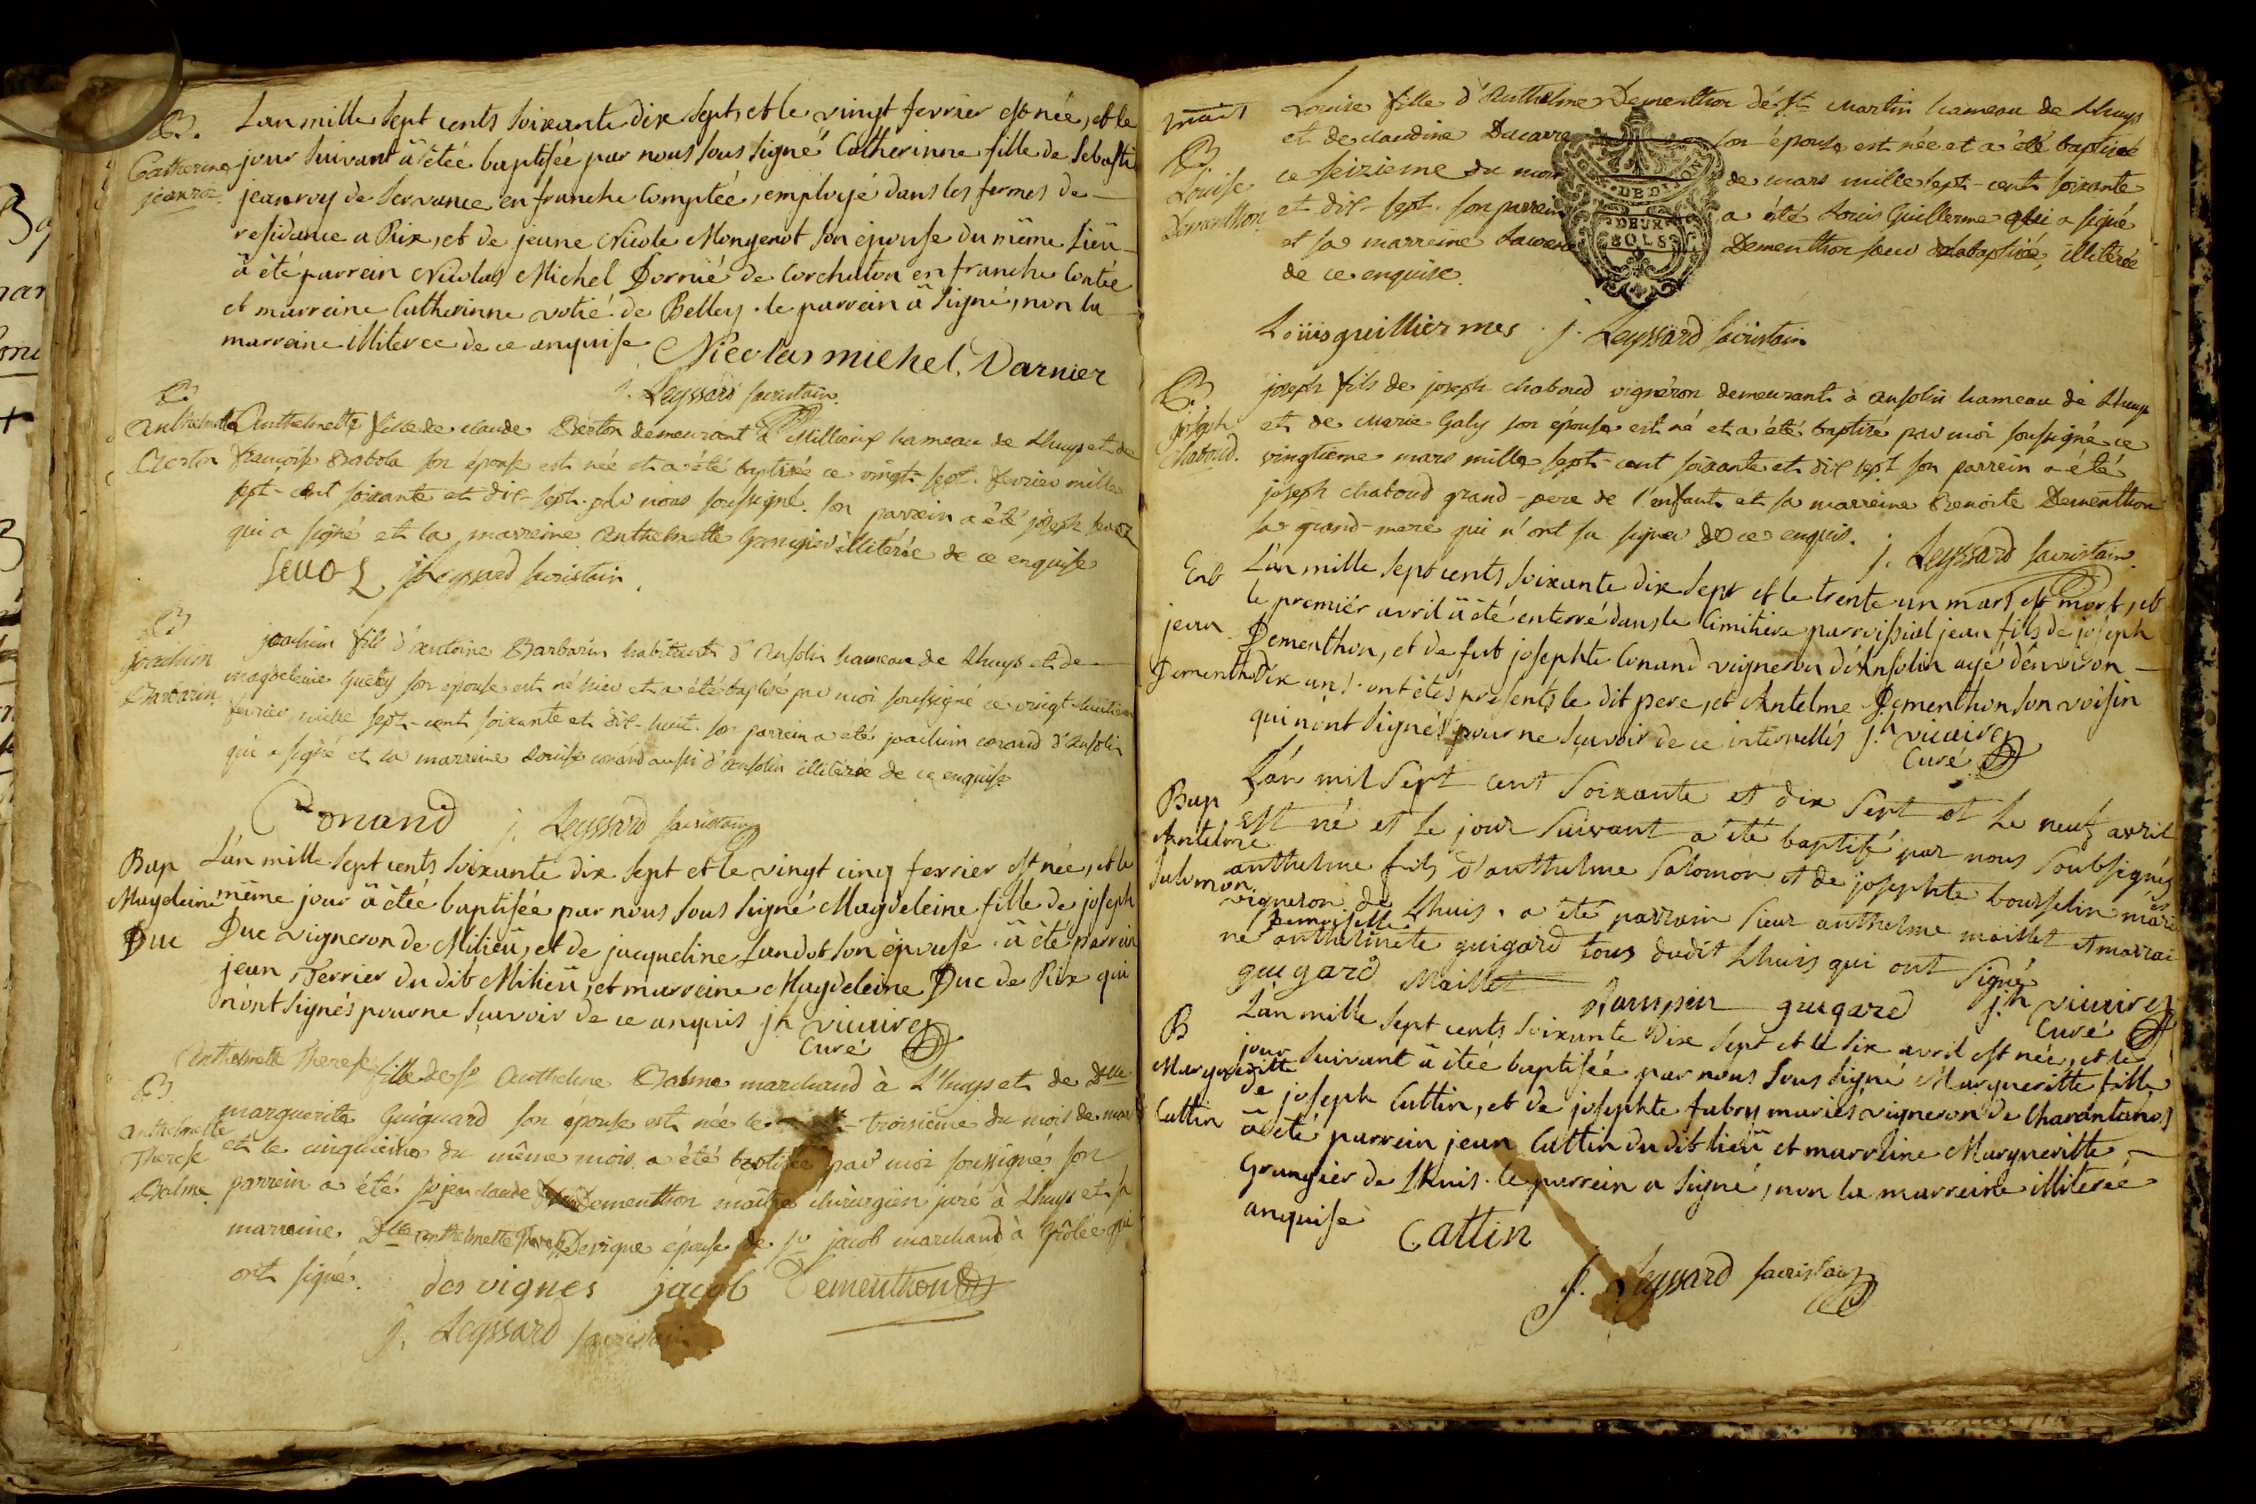 B.
Catherine
jeanroi
L'an mille sept cents soixante dix sept, et le vingt fevrier est née, et le
jour suivant â êtée baptisée par nous sous signé Catherinne fille de Sebasti
jeanroy de Servance en franche Comptée, employé dans les fermes de
residance a Rix, et de jeane Nicole Mongenot son epouse du même Lieü
â été parrein Nicolas Michel Dornié de Corchaton en franche Contée
et marreine Catherinne votié de Belley. le parrein â signé, non la
marreine illiteree de ce anquise
Nicolas michel. Darnier
j. Leyssard sacristain.
B.
Anthelmette
Berton
Anthelmette fille de claude Berton demeurant à Millieux hameau de Lhuys et de
françoise Babola son épouse est née et a été baptisée ce vingt-sept fevrier mille
sept-cent soixante et dix-sept par nous soussigné. son parrein a été joseph
qui a signé et la marreine Anthelmette Grangier illitérée de ce enquise
j. Leyssard sacristain
B.
joachim
Barbarin
joachim fils d'antoine Barbarin habitant d'Ansolin hameau de Lhuys et de
magdeleine Guety son epouse est né hier et a été baptisé par moi soussigné ce vingt-huitième
février mille sept-cent soixante et dix-huit. son parrein a eté joachim conand d'Ansolin
qui a signé et sa marreine Louise conand aussi d'Ansolin illitérée de ce enquise
Conand j. Leyssard sacristain
Bap
Magdeleine
Duc
L'an mille sept cents soixante dix sept et le vingt cinq fevrier est née, et le
même jour â êtée baptisée par nous sous signé Magdeleine fille de joseph
Duc vigneron de Milieü, et de jacqueline Landot son épouse. â êté parrein
jean Ferrier du dit Milieü, et marreine Magdeleine Duc de Rix qui
n'ont signés pour ne sçavoir de ce anquis jh vicaire
Curé
B.
Anthelmette
Therese
Balme
Anthelmette Therese fille de sr Anthelme Balme marchand à L'huys et de Dlle
marguerite Guiguard son épouse est née le troisième du mois de mars
et le cinquieme du même mois a été baptisée par moi soussigné son
parrein a été sr jean claude Dementhon maître chirurgien juré à Lhuys et sa
marreine Dlle anthelmette Therese Devigne épouse de sr jacob marchand à Grôlée qui
ont signé.
des vignes jacob Dementhon
j. Leyssard sacristain
mars
B.
Louise
Dementhon
Louise fille d'Anthelme Dementhon de st. martin hameau de Lhuys
et de claudine Ducarre son épouse est née et a été baptisé
ce seizieme du mois de mars mille sept-cent soixante
et dix-sept. son parrein a été Louis Guillerme qui a signé
et sa marreine Dementhon soeur de la baptisée, illitérée
de ce enquise.
DEUX
SOLS
Loüis guilliermes. j. Leyssard sacristain
B.
joseph
Chaboud.
joseph fils de joseph chaboud vigneron demeurant à ansolin hameau de Lhuys
et de marie Galy son épouse est né et a été baptisé par moi soussigné ce
vingtieme mars mille sept-cent soixante et dix sept son parrein a été
joseph chaboud grand-pere de l'enfant et sa marreine Benoite Dementhon
sa grand-mere qui n'ont su signer de ce enquis. j. Leyssard sacristain.
Ent
jean
Dementhon
L'an mille sept cents soixante dix sept et le trente un mars est mort, et
le premier avril â été enterré dans le Cimitiere parroissial jean fils de joseph
Dementhon, et de fut josephte Conand vigneron d'Ansolin agé d'environ
Dix ans. ont étés presents le dit pere, et Antelme Dementhon son voisin
qui n'ont signés pour ne sçavoir de ce interpellés jh vicaire
Curé
Bap
Antelme
Salomon
L'an mil sept cent soixante et dix sept et le neuf avril
est né et le jour suivant a été baptisé par nous soubsignés
anthelme fils d'anthelme Salomon et de josephte bourselin mariés
vigneron de Lhuis. a été parrain sieur anthelme maillet et marrai
ne demoiselle anthelmete guigard tous dudit Lhuis qui ont signé
guigard Maillet guigard jh vicaire
Curé
B
Margueritte
Cattin
L'an mille sept cents soixante dix sept et le six avril est née, et le
jour suivant â êtée baptisée par nous sous signé Margueritte fille
de joseph Cattin, et de josephte fabry mariés vigneron de Charantanos
â été parrein jean Cattin du dit lieü et marreine Margueritte
Grangier de Lhuis. le parrein a signé, non la marreine illiterée
anquise
Cattin
j. Leyssard sacristain